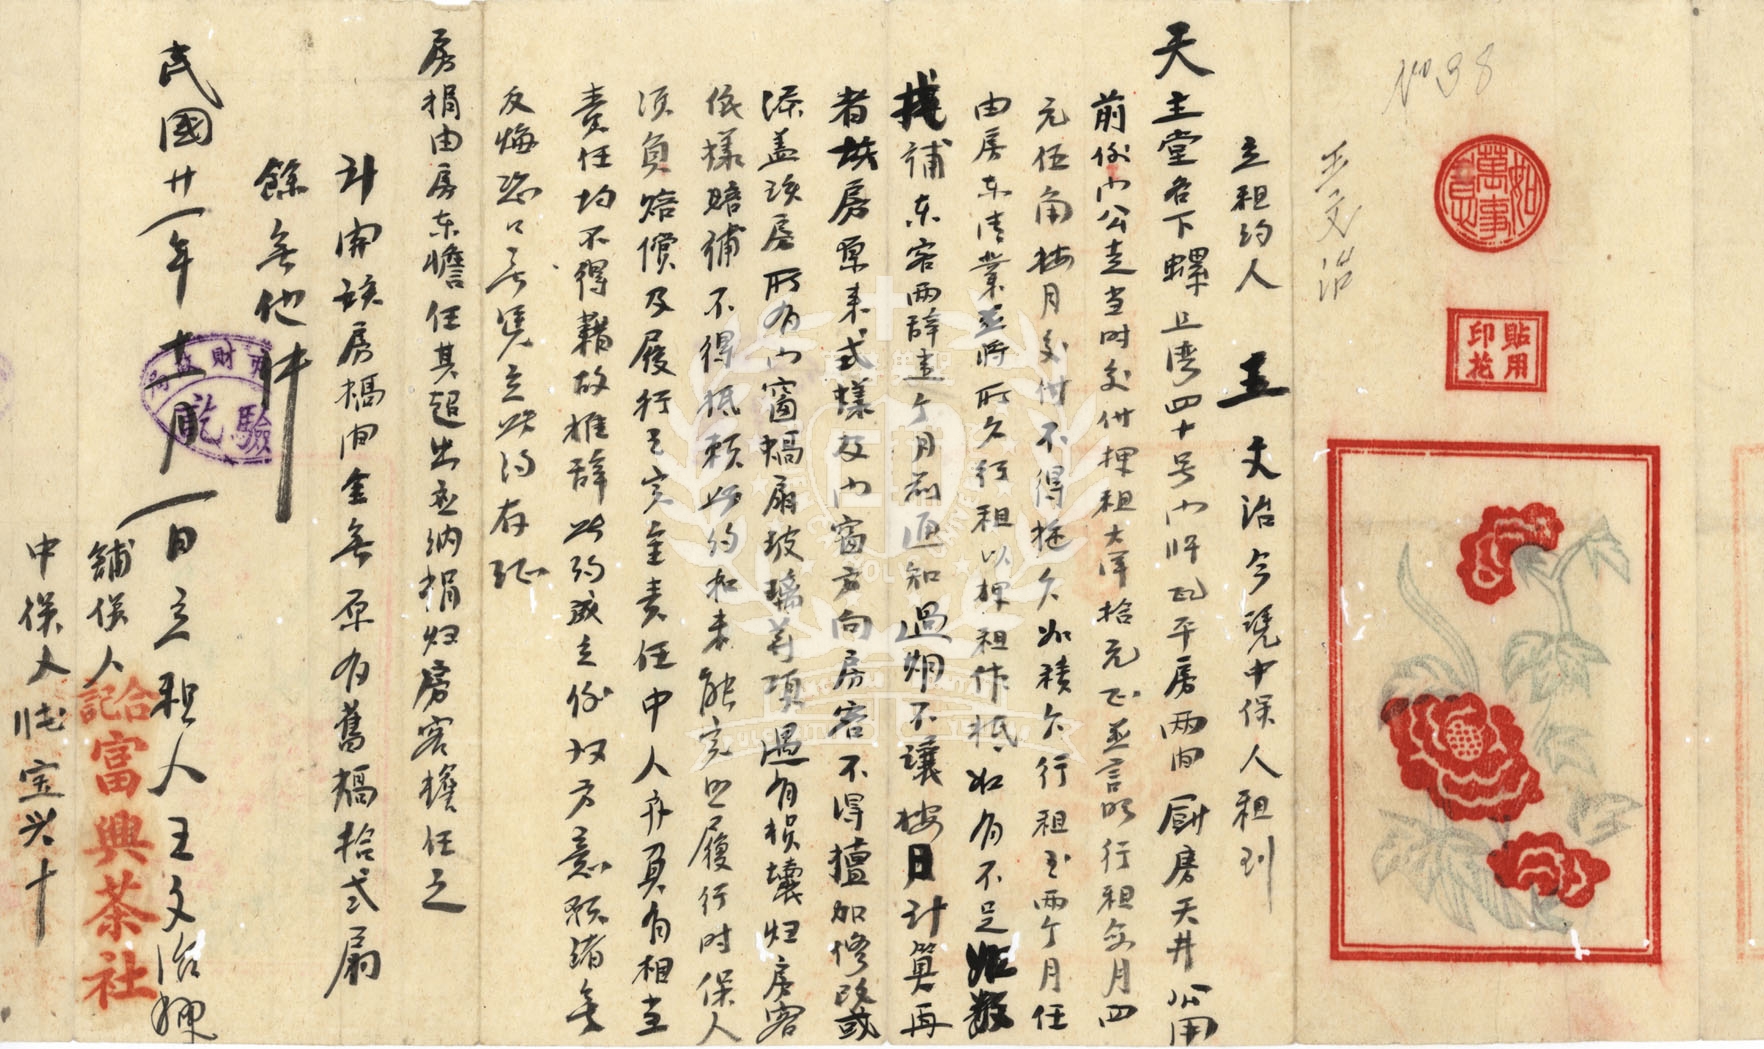 No 38
王文治
如意萬事
貼用印花
立租約人 王 文治今憑中保人租到
天主堂名下螺丘灣四十号內阡瓦平房兩間厨房天井公用
前後門公走当時交付押租大洋拾元正並言明行租每月四
元伍角按月交付不得拖欠如積欠行租至兩个月任
由房东清業並將所欠行租以押租作抵如有不足如数
找補东客兩辞壹个月前通知過期不讓按日計算再
者该房原来式樣及门窗方向房客不得擅加修改或
添盖该房所有门窗槅扇玻璃等項遇有损壞归房客
依樣赔補不得抵賴此約如未能完畢履行时保人
须負赔償及履行之完全責任中人亦負有相当
責任均不得藉故推辞此約成立後双方意願諸無
反悔恐口無凭立此約存証
房捐由房东担任其超出应纳捐归房客擔任之
計開该房槅間全無原有舊槅拾弍扇
餘無他件
民國廿一年十一月一日立租人王文治押
驗訖
舖保人
合記富興茶社
中保人陆宝兴十